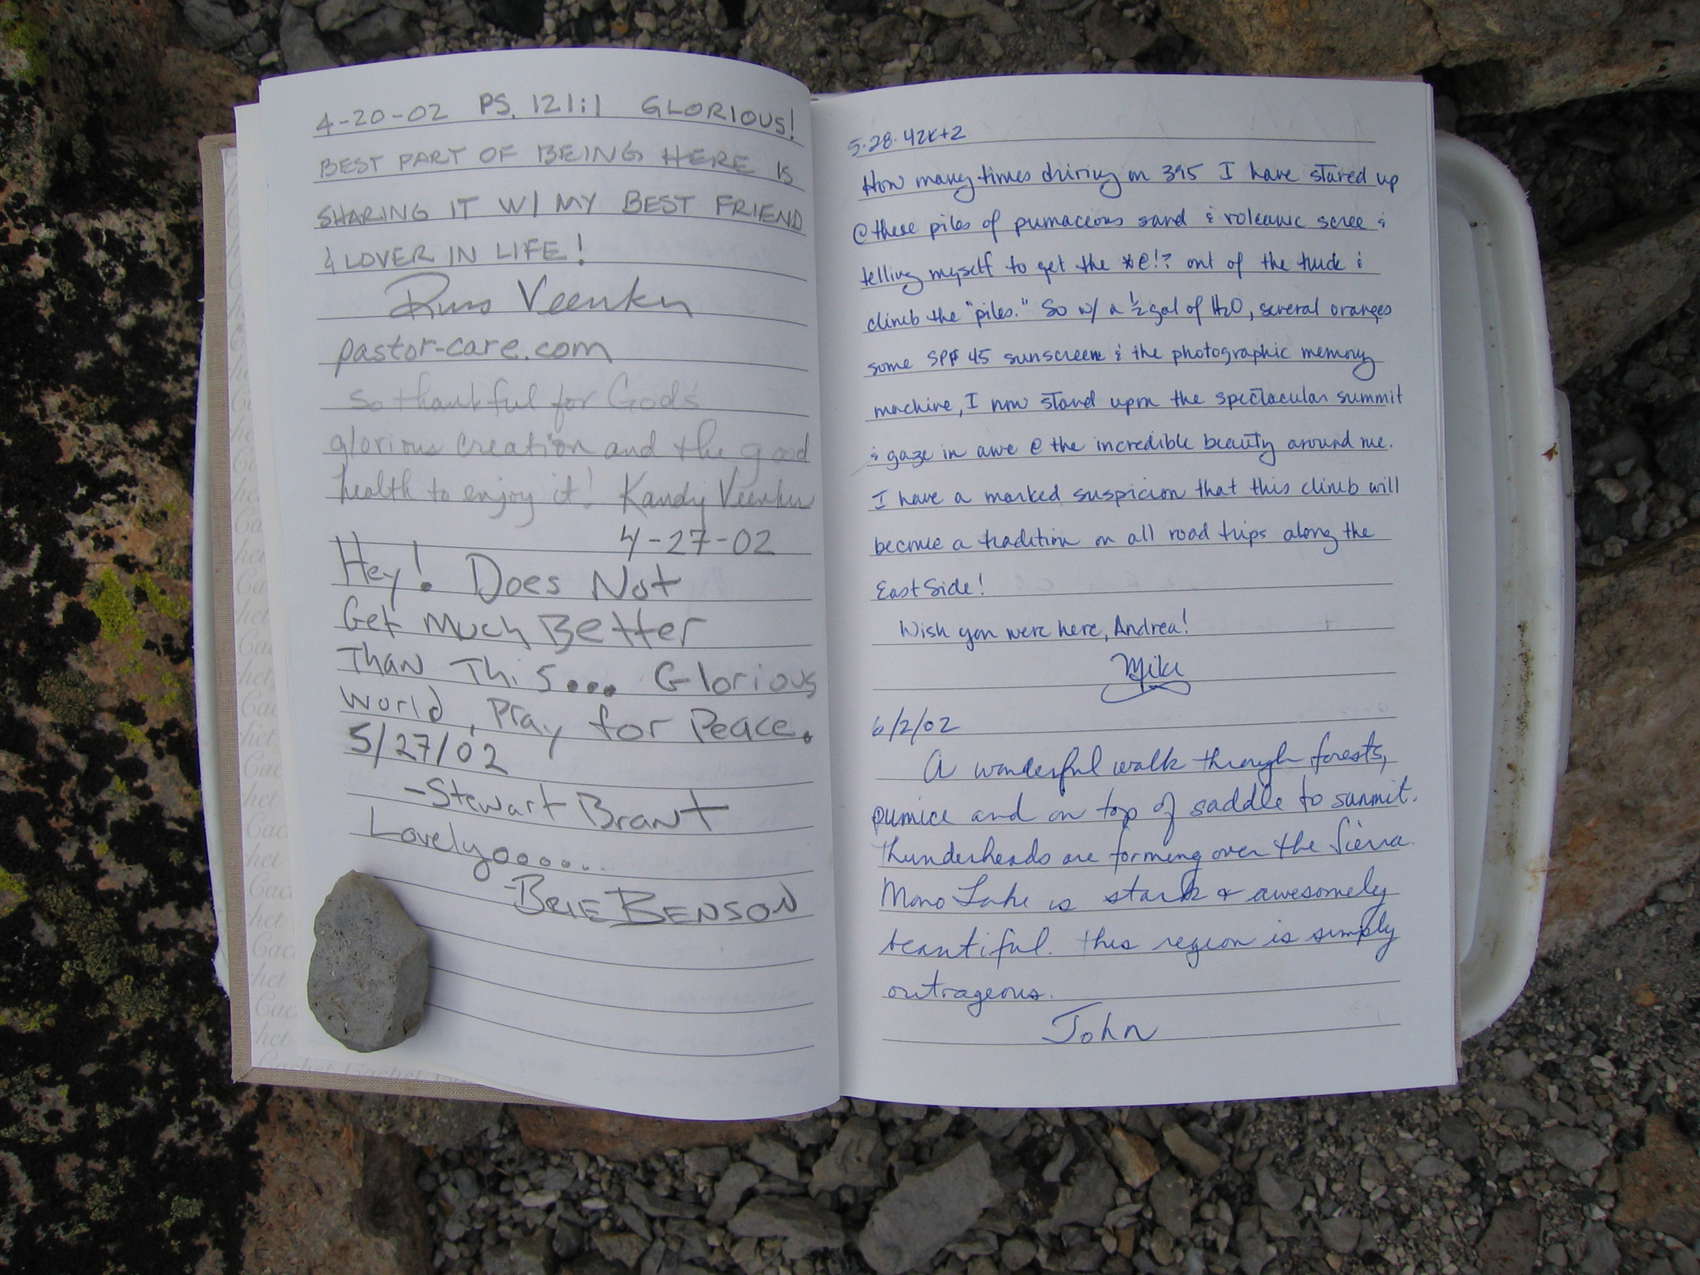 4-20-02 PS. 121:1 GLORIOUS!
BEST PART OF BEING HERE IS
SHARING IT W/ MY BEST FRIEND
& LOVER IN LIFE!
Russ Veenker
pastor-care.com
So thankful for God's
glorious creation and the good
health to enjoy it! Kandy Veenker
4-27-02
Hey! Does Not
Get Much Better
Than This... Glorious
World, Pray for Peace.
5/27/02
-Stewart Brant
Lovelyoooo...
-BRIE BENSON
5·28·42K+2
How many times driving on 395 I have stared up
@ these piles of pumaceous sand & volcanic scree &
telling myself to get the *@!? out of the truck &
climb the "piles." So w/ a ½ gal of H2O, several oranges
some SPF 45 sunscreen & the photographic memory
machine, I now stand upon the spectacular summit
& gaze in awe @ the incredible beauty around me.
I have a marked suspicion that this climb will
become a tradition on all road trips along the
East Side!
Wish you were here, Andrea!
Mike
6/2/02
A wonderful walk through forests,
pumice and on top of saddle to summit.
Thunderheads are forming over the Sierra.
Mono Lake is stark & awesomely
beautiful. This region is simply
outrageous.
John